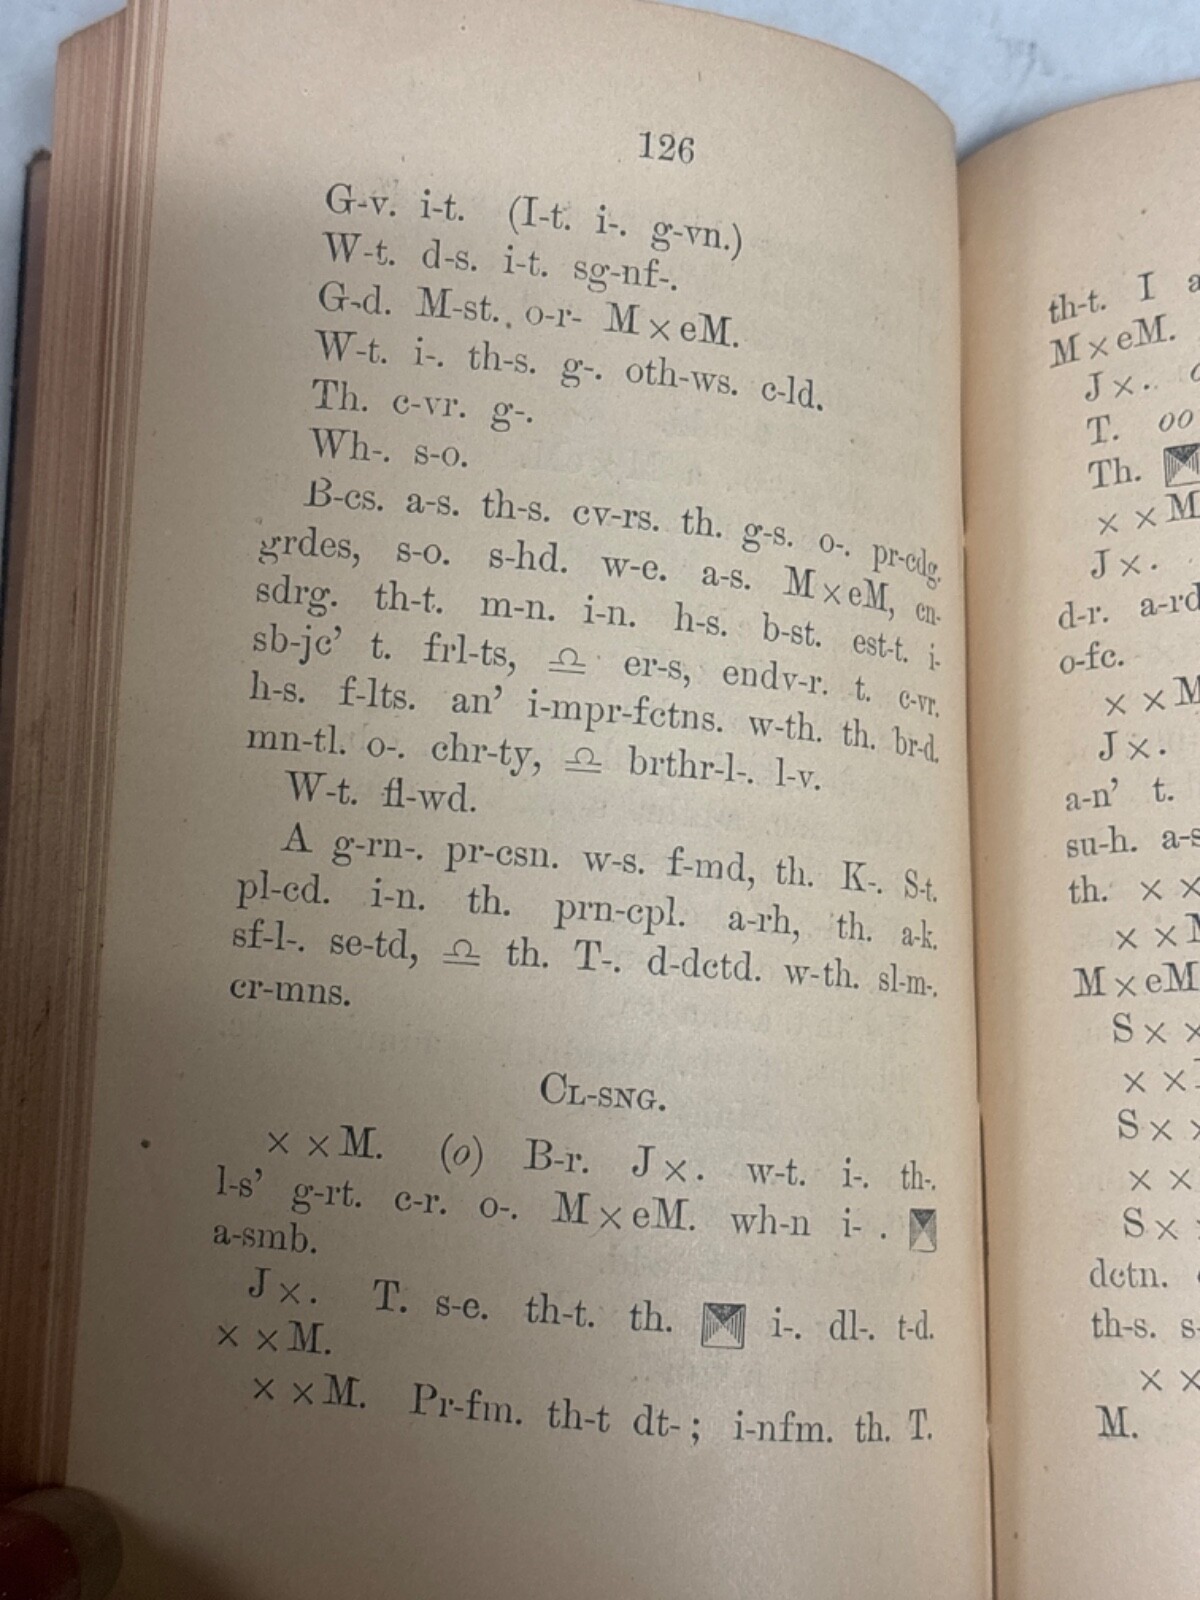 126
G-v. i-t. (I-t. i-. g-vn.)
W-t. d-s. i-t. sg-nf-.
G-d. M-st. o-r- M×eM.
W-t. i-. th-s. g-. oth-ws. c-ld.
Th. c-vr. g-.
Wh-. s-o.
B-cs. a-s. th-s. cv-rs. th. g-s. o-. pr-cdg.
grdes, s-o. s-hd. w-e. a-s. M×eM, cn-
sdrg. th-t. m-n. i-n. h-s. b-st. est-t. i-
sb-jc' t. frl-ts, ♎ er-s, endv-r. t. c-vr.
h-s. f-lts. an' i-mpr-fctns. w-th. th. br-d.
mn-tl. o-. chr-ty, ♎ brthr-l-. l-v.
W-t. fl-wd.
A g-rn-. pr-csn. w-s. f-md, th. K-. S-t.
pl-cd. i-n. th. prn-cpl. a-rh, th. a-k.
sf-l-. se-td, ♎ th. T-. d-dctd. w-th. sl-m-.
cr-mns.
CL-SNG.
××M. (o) B-r. J×. w-t. i-. th-.
l-s' g-rt. c-r. o-. M×eM. wh-n i- .
a-smb.
J×. T. s-e. th-t. th. i-. dl-. t-d.
××M.
××M. Pr-fm. th-t dt-; i-nfm. th. T.
th-t. I a
M×eM.
J×.
T. oo
Th.
××M
J×.
d-r. a-rd
o-fc.
××M
J×.
a-n' t.
su-h. a-s
th. ××
××M
M×eM
S××
××
S××
××
S×
dctn.
th-s. s-
××
M.